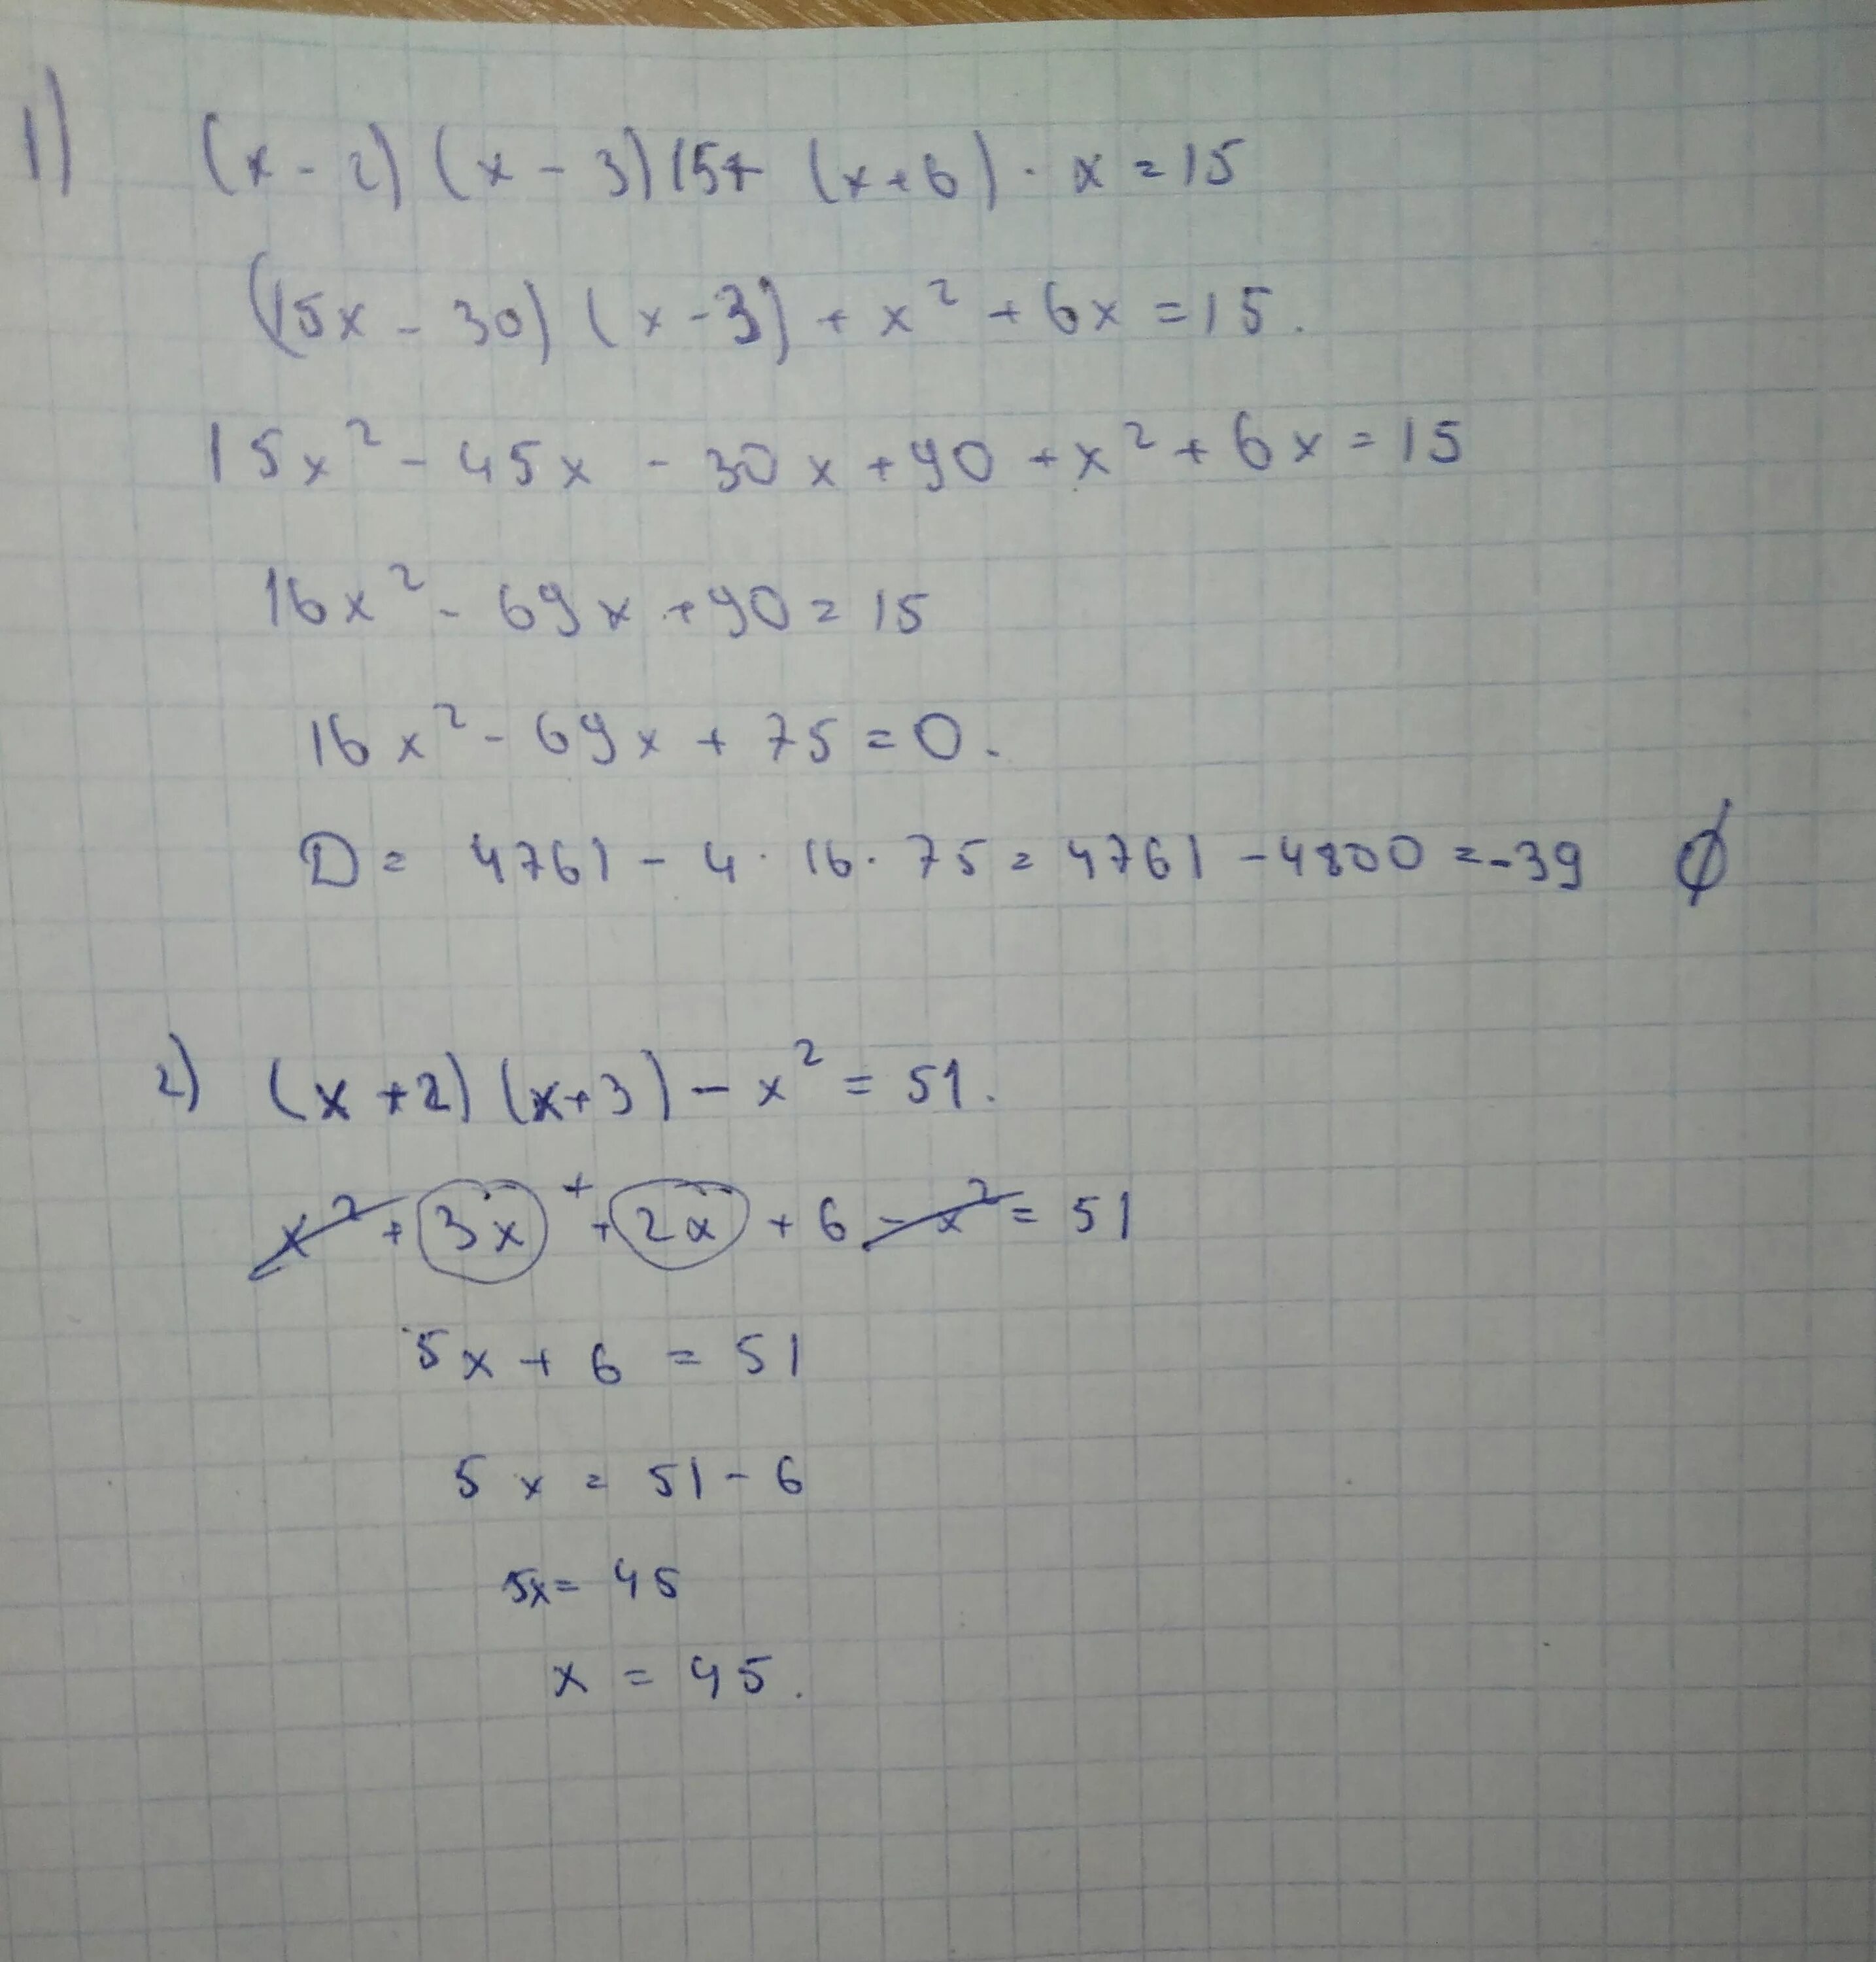 1) (x - 2) (x - 3) 15 + (x + 6) · x = 15
(15x - 30) (x - 3) + x² + 6x = 15.
15x² - 45x - 30x + 90 + x² + 6x = 15
16x² - 69x + 90 = 15
16x² - 69x + 75 = 0.
D = 4761 - 4 · 16 · 75 = 4761 - 4800 = -39 ∅
2) (x + 2) (x + 3) - x² = 51.
x² + 3x + + 2x + 6 - x² = 51
5x + 6 = 51
5x = 51 - 6
5x = 45
x = 45.